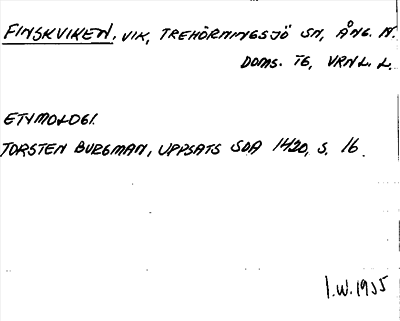 FINSKVIKEN, VIK, TREHÖRNINGSJÖ SN, ÅNG. N.
DOMS. TG, VRNL. L.
ETYMOLOGI.
TORSTEN BURGMAN, UPPSATS SOA 1420, S. 16.
I.W. 1955